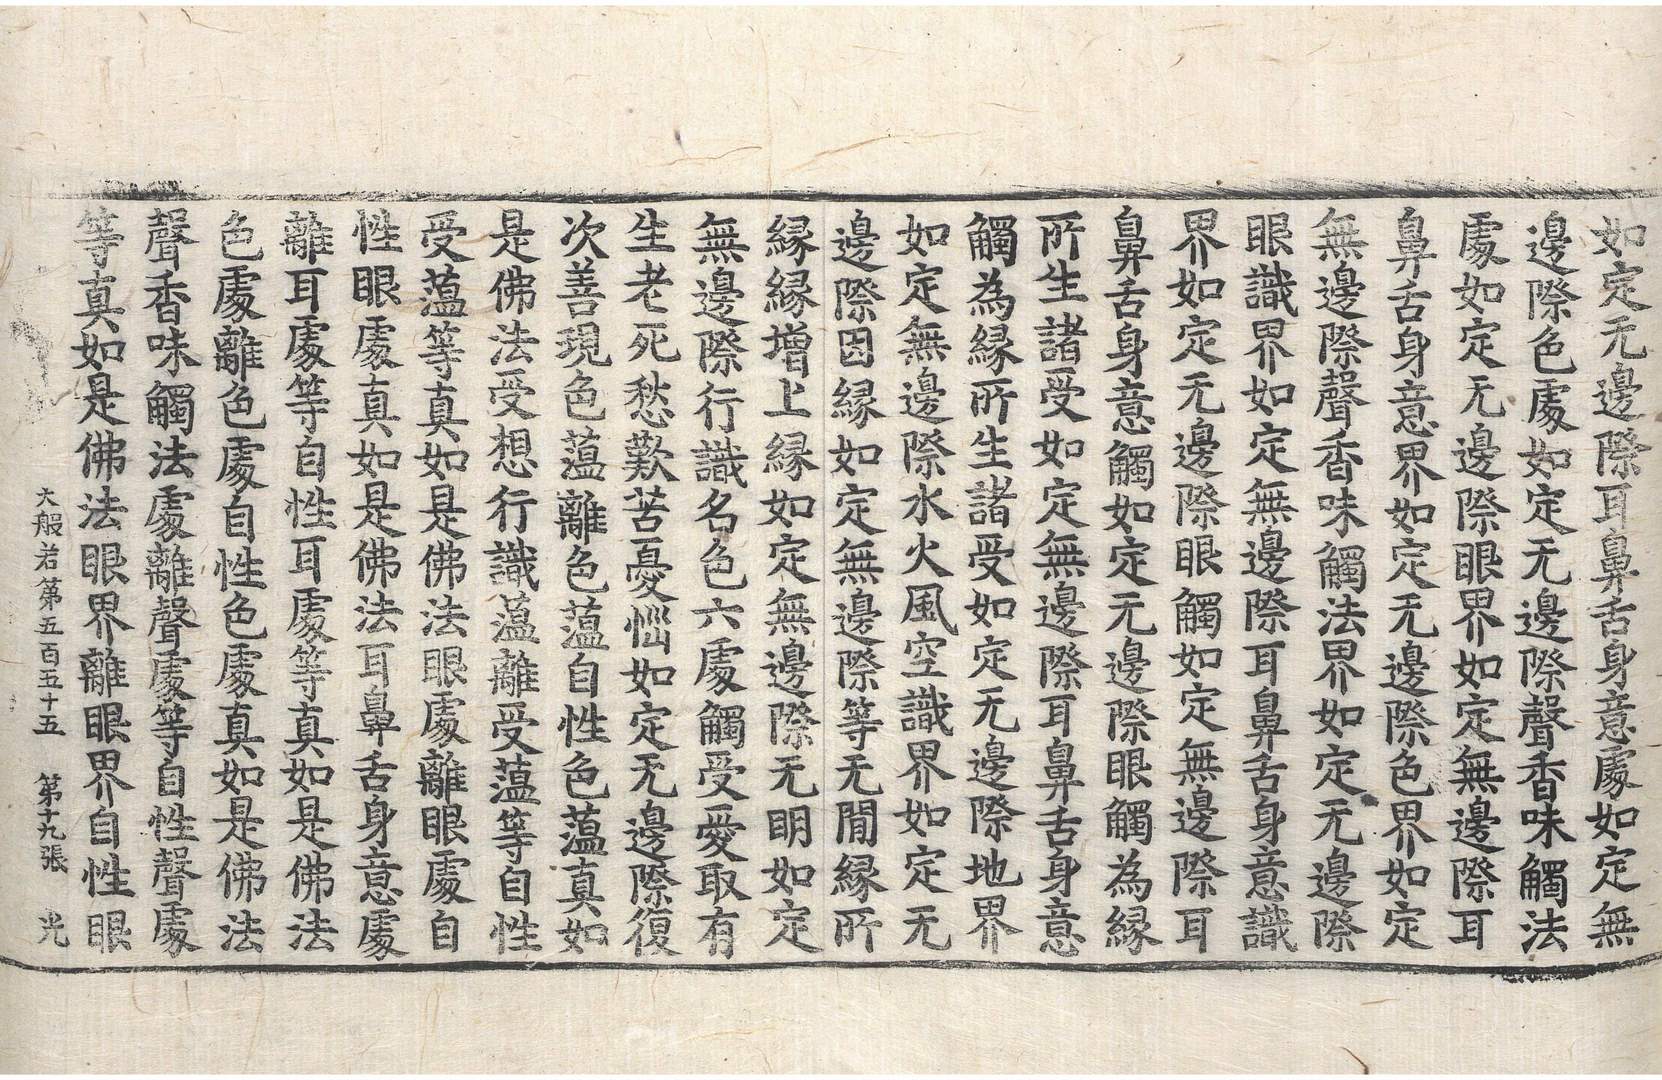 如定无邊際耳鼻舌身意處如定無
邊際色處如定无邊際聲香味觸法
處如定无邊際眼界如定無邊際耳
鼻舌身意界如定无邊際色界如定
無邊際聲香味觸法界如定无邊際
眼識界如定無邊際耳鼻舌身意識
界如定无邊際眼觸如定無邊際耳
鼻舌身意觸如定无邊際眼觸為緣
所生諸受如定無邊際耳鼻舌身意
觸為緣所生諸受如定无邊際地界
如定無邊際水火風空識界如定无
邊際因緣如定無邊際等无間緣所
緣緣增上緣如定無邊際无明如定
無邊際行識名色六處觸受愛取有
生老死愁歎苦憂惱如定无邊際復
次善現色蘊離色蘊自性色蘊真如
是佛法受想行識蘊離受蘊等自性
受蘊等真如是佛法眼處離眼處自
性眼處真如是佛法耳鼻舌身意處
離耳處等自性耳處等真如是佛法
色處離色處自性色處真如是佛法
聲香味觸法處離聲處等自性聲處
等真如是佛法眼界離眼界自性眼
大般若第五百五十五 第十九張 光